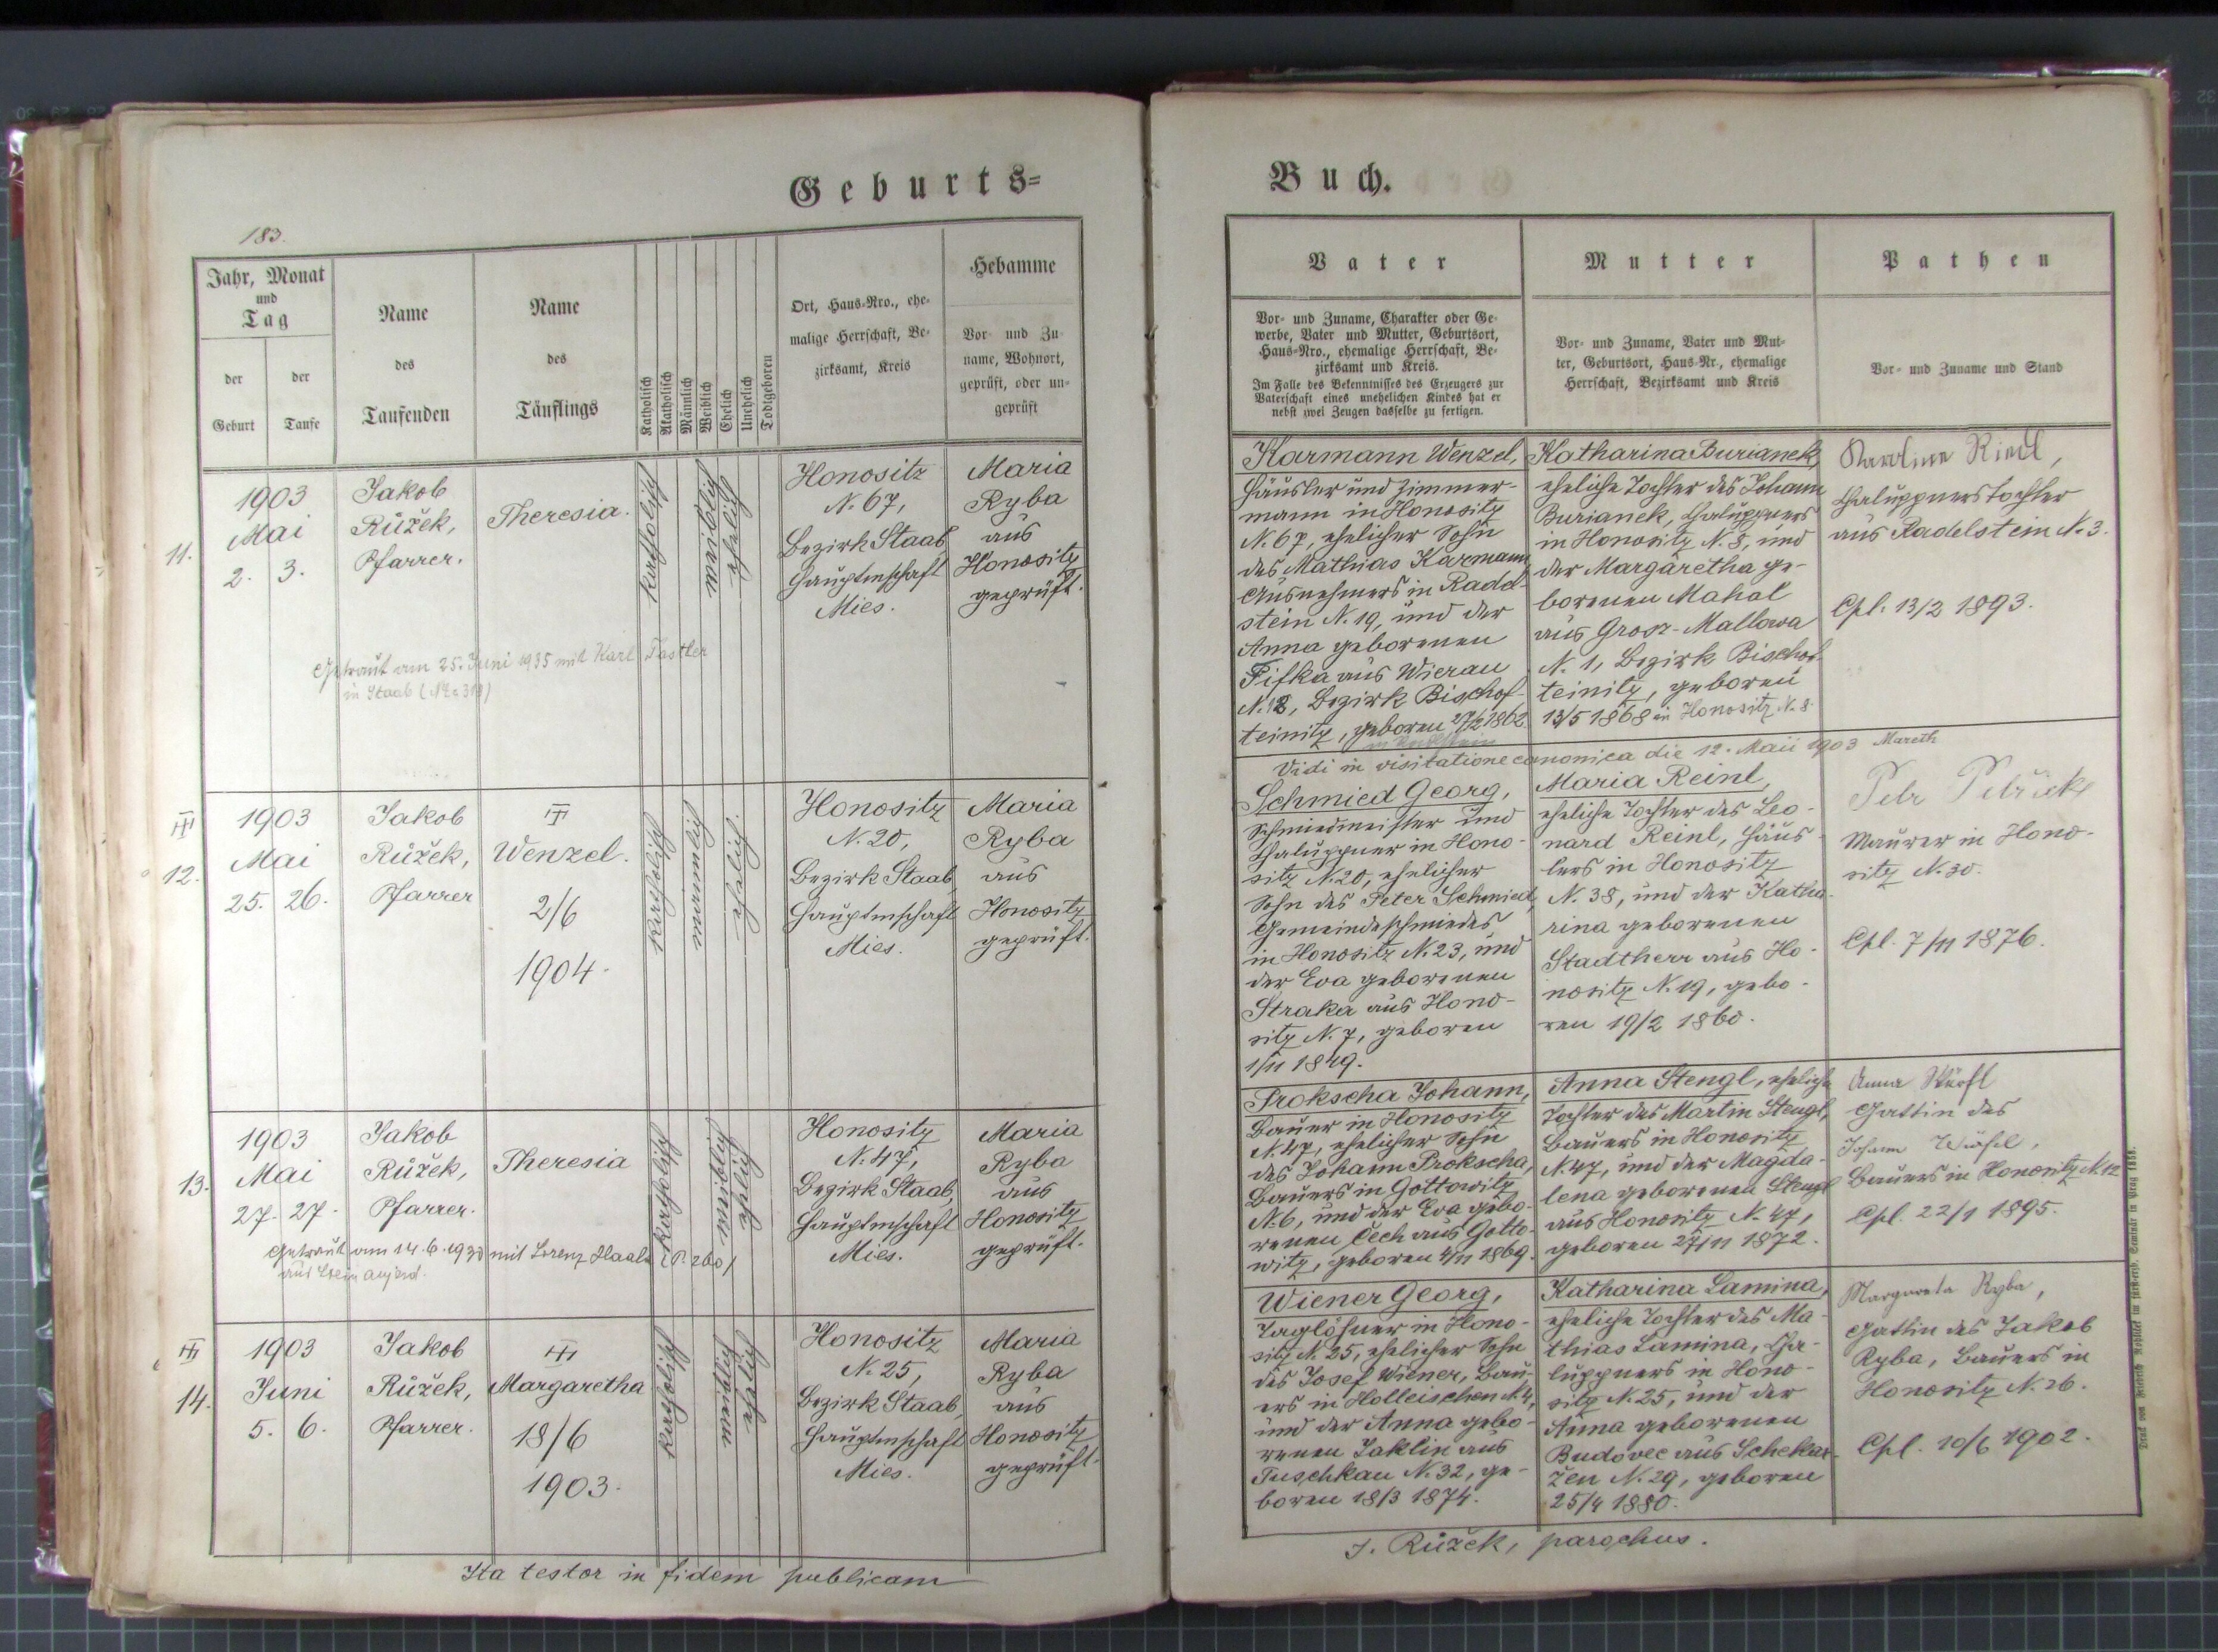 Geburts=
183.
Jahr, Monat
und
Tag
der
Geburt
der
Taufe
Name
des
Taufenden
Name
des
Täuflings
Katholisch
Akatholisch
Männlich
Weiblich
Ehelich
Unehelich
Todtgeboren
Ort, Haus-Nro., ehe-
malige Herrschaft, Be-
zirksamt, Kreis
Hebamme
Vor- und Zu-
name, Wohnort,
geprüft, oder un-
geprüft
11.
1903
Mai
2. 3.
Jakob
Růžek,
Pfarrer.
Theresia.
katholisch
weiblich
ehelich
Honositz
N. 67,
Bezirk Staab,
Hauptmschaft
Mies.
Maria
Ryba
aus
Honositz
geprüft.
Getraut am 25. Juni 1935 mit Karl Tastler
in Staab
12.
1903
Mai
25. 26.
Jakob
Růžek,
Pfarrer
Wenzel.
2/6
1904.
katholisch
männlich
ehelich.
Honositz
N. 20,
Bezirk Staab,
Hauptmschaft
Mies.
Maria
Ryba
aus
Honositz
geprüft.
13.
1903
Mai
27. 27.
Jakob
Růžek,
Pfarrer.
Theresia
katholisch
weiblich
ehelich
Honositz
N. 47,
Bezirk Staab,
Hauptmschaft
Mies.
Maria
Ryba
aus
Honositz
geprüft.
Getraut am 14.6.1930 mit Lorenz
14.
1903
Juni
5. 6.
Jakob
Růžek,
Pfarrer.
Margaretha
18/6
1903.
katholisch
weiblich
ehelich
Honositz
N. 25,
Bezirk Staab,
Hauptmschaft
Mies.
Maria
Ryba
aus
Honositz
geprüft.
Ita testor in fidem publicam
Buch.
Vater
Vor- und Zuname, Charakter oder Ge-
werbe, Vater und Mutter, Geburtsort,
Haus-Nro., ehemalige Herrschaft, Be-
zirksamt und Kreis.
Im Falle des Bekenntnisses des Erzeugers zur
Vaterschaft eines unehelichen Kindes hat er
nebst zwei Zeugen dasselbe zu fertigen.
Mutter
Vor- und Zuname, Vater und Mut-
ter, Geburtsort, Haus-Nr., ehemalige
Herrschaft, Bezirksamt und Kreis
Pathen
Vor- und Zuname und Stand
Karmann Wenzel,
Häusler und Zimmer-
mann in Honositz
N. 67, ehelicher Sohn
des Mathias Karmann,
Ausnehmers in Radel-
stein N. 19, und der
Anna geborenen
Fifka aus Wierau
N. 12, Bezirk Bischof-
teinitz, geboren 27/2 1862
Katharina Burianek,
eheliche Tochter des Johann
Burianek, Chaluppners
in Honositz N. 8, und
der Margaretha ge-
borenen Mahal
aus Grosz-Mallowa
N. 1, Bezirk Bischof-
teinitz, geboren
13/5 1868 in Honositz N. 8.
Karoline Riedl,
Chaluppnerstochter
aus Radelstein N. 3.
Cpl. 13/2 1893.
Vidi in visitatione canonica die 12. Maii 1903 Mareth
Schmied Georg,
Schmiedmeister und
Chaluppner in Hono-
sitz N. 20, ehelicher
Sohn des Peter Schmied,
Gemeindeschmiedes
in Honositz N. 23, und
der Eva geborenen
Straka aus Hono-
sitz N. 7, geboren
1/11 1849.
Maria Reinl,
eheliche Tochter des Leo-
nard Reinl, Häus-
lers in Honositz
N. 38, und der Katha-
rina geborenen
Stadtherr aus Ho-
nositz N. 19, gebo-
ren 19/2 1860.
Petr
Maurer in Hono-
sitz N. 30.
Cpl. 7/11 1876.
Prokscha Johann,
Bauer in Honositz
N. 47, ehelicher Sohn
des Johann Prokscha,
Bauers in Gottowitz
N. 6, und der Eva gebo-
renen Čech aus Gotto-
witz, geboren 4/11 1869.
Anna Stengl, eheliche
Tochter des Martin Stengl,
Bauers in Honositz
N. 47, und der Magda-
lena geborenen Stengl
aus Honositz N. 47,
geboren 27/11 1872.
Anna
Gattin des
Johann
Bauers in Honositz N. 12
Cpl. 22/1 1895.
Wiener Georg,
Taglöhner in Hono-
sitz N. 25, ehelicher Sohn
des Josef Wiener, Bau-
ers in Holleischen N. 4,
und der Anna gebo-
renen Jaklin aus
Tuschkau N. 32, ge-
boren 18/3 1874.
Katharina Lamina,
eheliche Tochter des Ma-
thias Lamina, Cha-
luppners in Hono-
sitz N. 25, und der
Anna geborenen
Budovec aus Schekar-
žen N. 29, geboren
25/4 1880.
Margareta Ryba,
Gattin des Jakob
Ryba, Bauers in
Honositz N. 26.
Cpl. 10/6 1902.
J. Růžek, parochus.